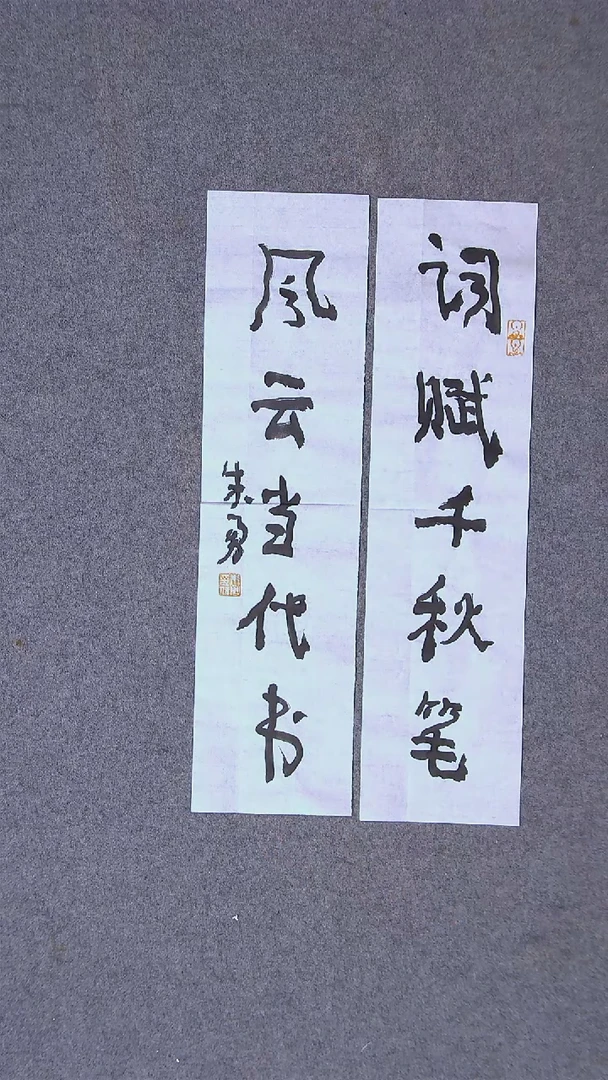 词赋千秋笔
风云当代书
朱勇